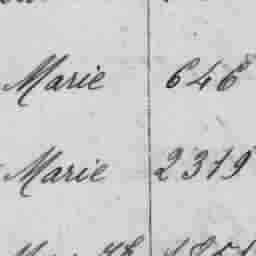 Marie 646
Marie 2319